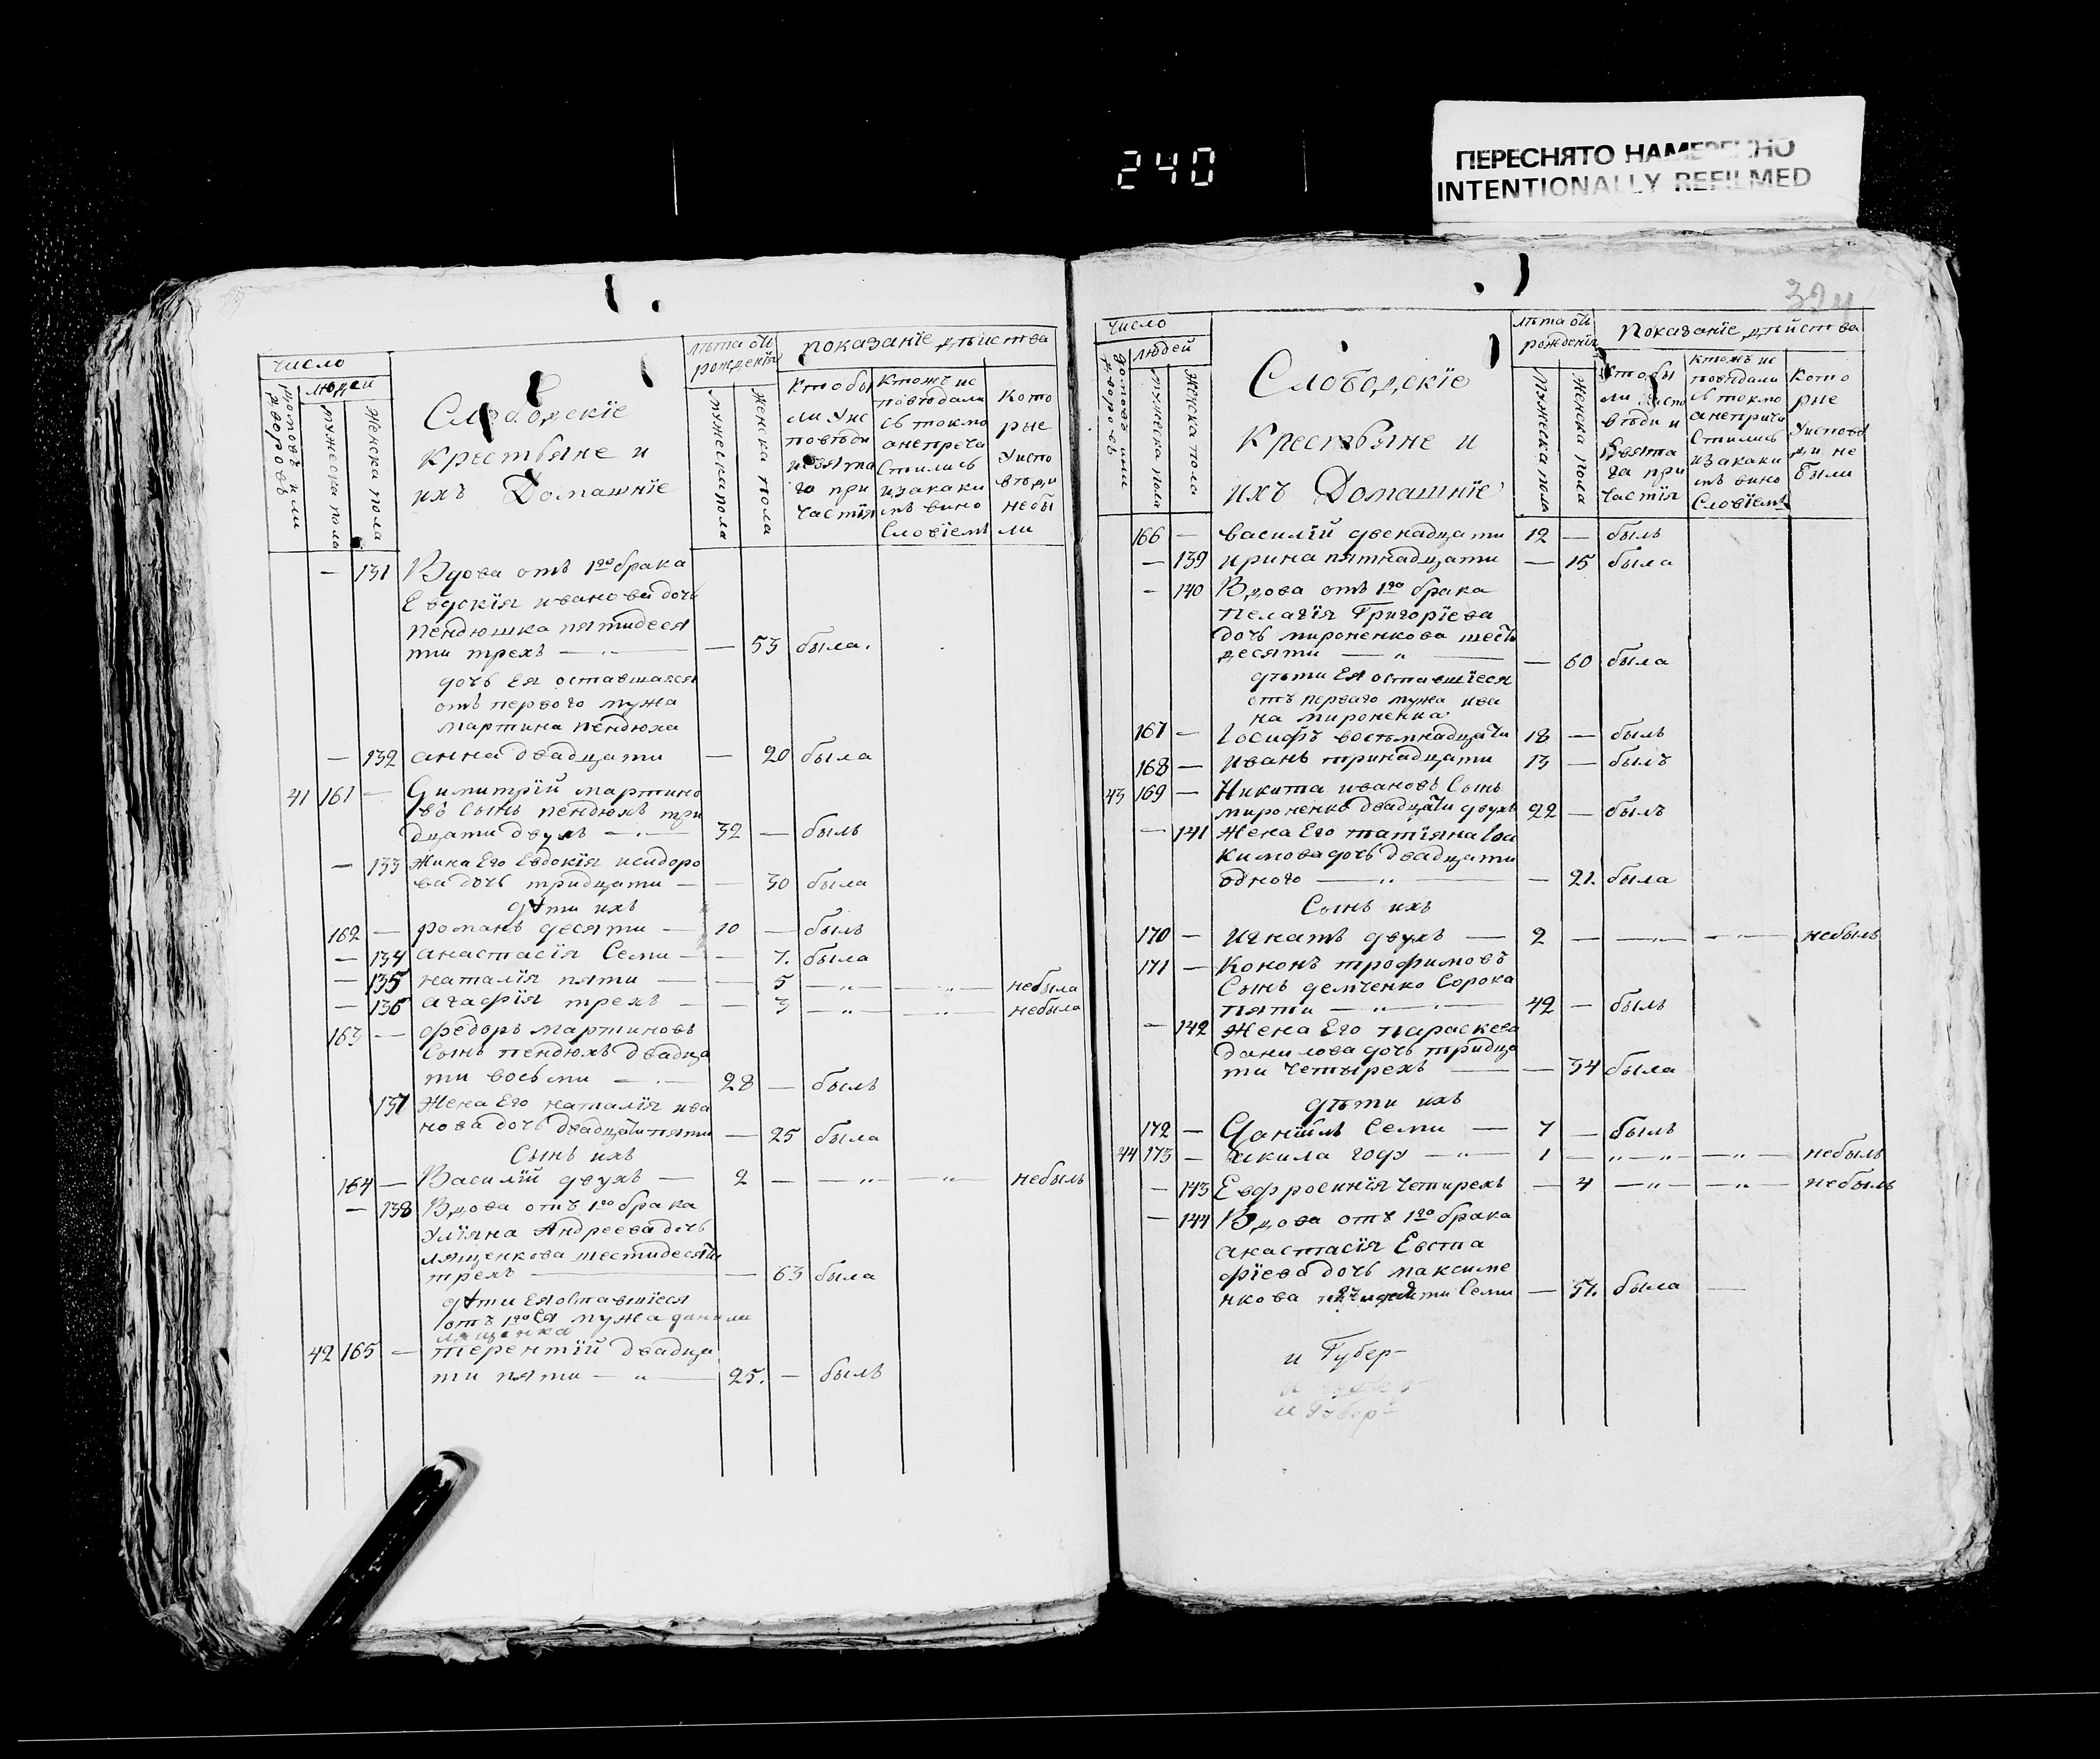 240
ПЕРЕСНЯТО НАМЕРЕННО
INTENTIONALLY REFILMED
число
людей
домовъ или дворовъ
мужеска пола
женска пола
Слободскіе
крестьяне и
ихъ Домашніе
лѣта отъ
рожденія
мужеска пола
женска пола
показаніе дѣйства
Кто бы
ли у ис
повѣди
и свята
го при
частія
Ктожъ ис
повѣдали
сь токмо
а непреча
стились
и за каки
мъ вино
Словіемъ
Кото
рые
у испо
вѣди
небы
ли
— 131 Вдова отъ 1го брака
Евдокія иванова дочь
пендюшка пятидеся
ти трехъ — — 53 была.
дочь Ея оставшаяся
отъ первого мужа
мартина пендюха
— 132 анна двадцати — 20 была
41 161 — Димитрій мартино
въ Сынъ пендюхъ три
дцати двухъ — 32 — былъ
— 133 Жина Его Евдокія исидоро
ва дочь тридцати — — 30 была
дѣти ихъ
162 — романъ десяти — 10 — былъ
— 134 анастасія Семи — — 7. была
— 135 наталія пяти — — 5 — „ — — „ — небыла
— 136 агафія трехъ — — 3 — „ — — „ — небыла
163 — федоръ мартиновъ
Сынъ пендюхъ двадца
ти восьми — 28 — былъ
137 Жена Его наталія ива
нова дочь двадцати пяти — 25 была
Сынъ ихъ
164 — Василій двухъ — 2 — — „ — — „ — небылъ
— 138 Вдова отъ 1го брака
Уліяна Андреева дочь
лященкова шестидесяти
трехъ — — 63 была
дѣти Ея оставшіеся
отъ 1го Ея мужа данили
лященка
42 165 — терентій двадца
ти пяти — „ — 25. — былъ
324
число
людей
домовъ или дворовъ
мужеска пола
женска пола
Слободскіе
Крестьяне и
ихъ Домашніе
лѣта отъ
рожденія
Мужеска пола
Женска пола
Показаніе дѣйства
Кто бы
ли у испо
вѣди и
Свята
го при
частія
Ктожъ ис
повѣдали
сь токмо
а неприча
стились
и за каки
мъ вино
Словіемъ
Кото
рые
У исповѣ
ди не
были
166 — василій двенадцати 12 — былъ
— 139 ирина пятнадцати — 15 была
— 140 Вдова отъ 1го брака
пелагія Григоріева
дочь мироненкова шесть
десяти — „ — — 60 была
дѣти Ея оставшіеся
отъ перваго мужа ива
на мироненка
167 — Іосифъ восьмнадцати 18 — былъ
168 — иванъ тринадцати 13 — былъ
43 169 — Никита ивановъ Сынъ
мироненко двадцати двухъ 22 — былъ
— 141 Жена Его татіяна Іоа
кимова дочь двадцати
одного — „ — — 21. была
Сынъ ихъ
170 — игнатъ двухъ — 2 — — „ — — „ — небылъ
171 — Кононъ трофимовъ
Сынъ демченко Сорока
пяти — „ — 42 — былъ
— 142 Жена Его параскева
данилова дочь тридца
ти четырехъ — — 34 была
дѣти ихъ
172 — Даніилъ Семи — 7 — былъ
44 173 — акила году — „ — 1 — „ — „ — — „ — небылъ
— 143 Евфросинія четирехъ — 4 — „ — — „ — небылъ
— 144 Вдова отъ 1го брака
анастасія Евста
фіева дочь максиме
нкова Семи — 57. была —
и Губер-
и Губер-